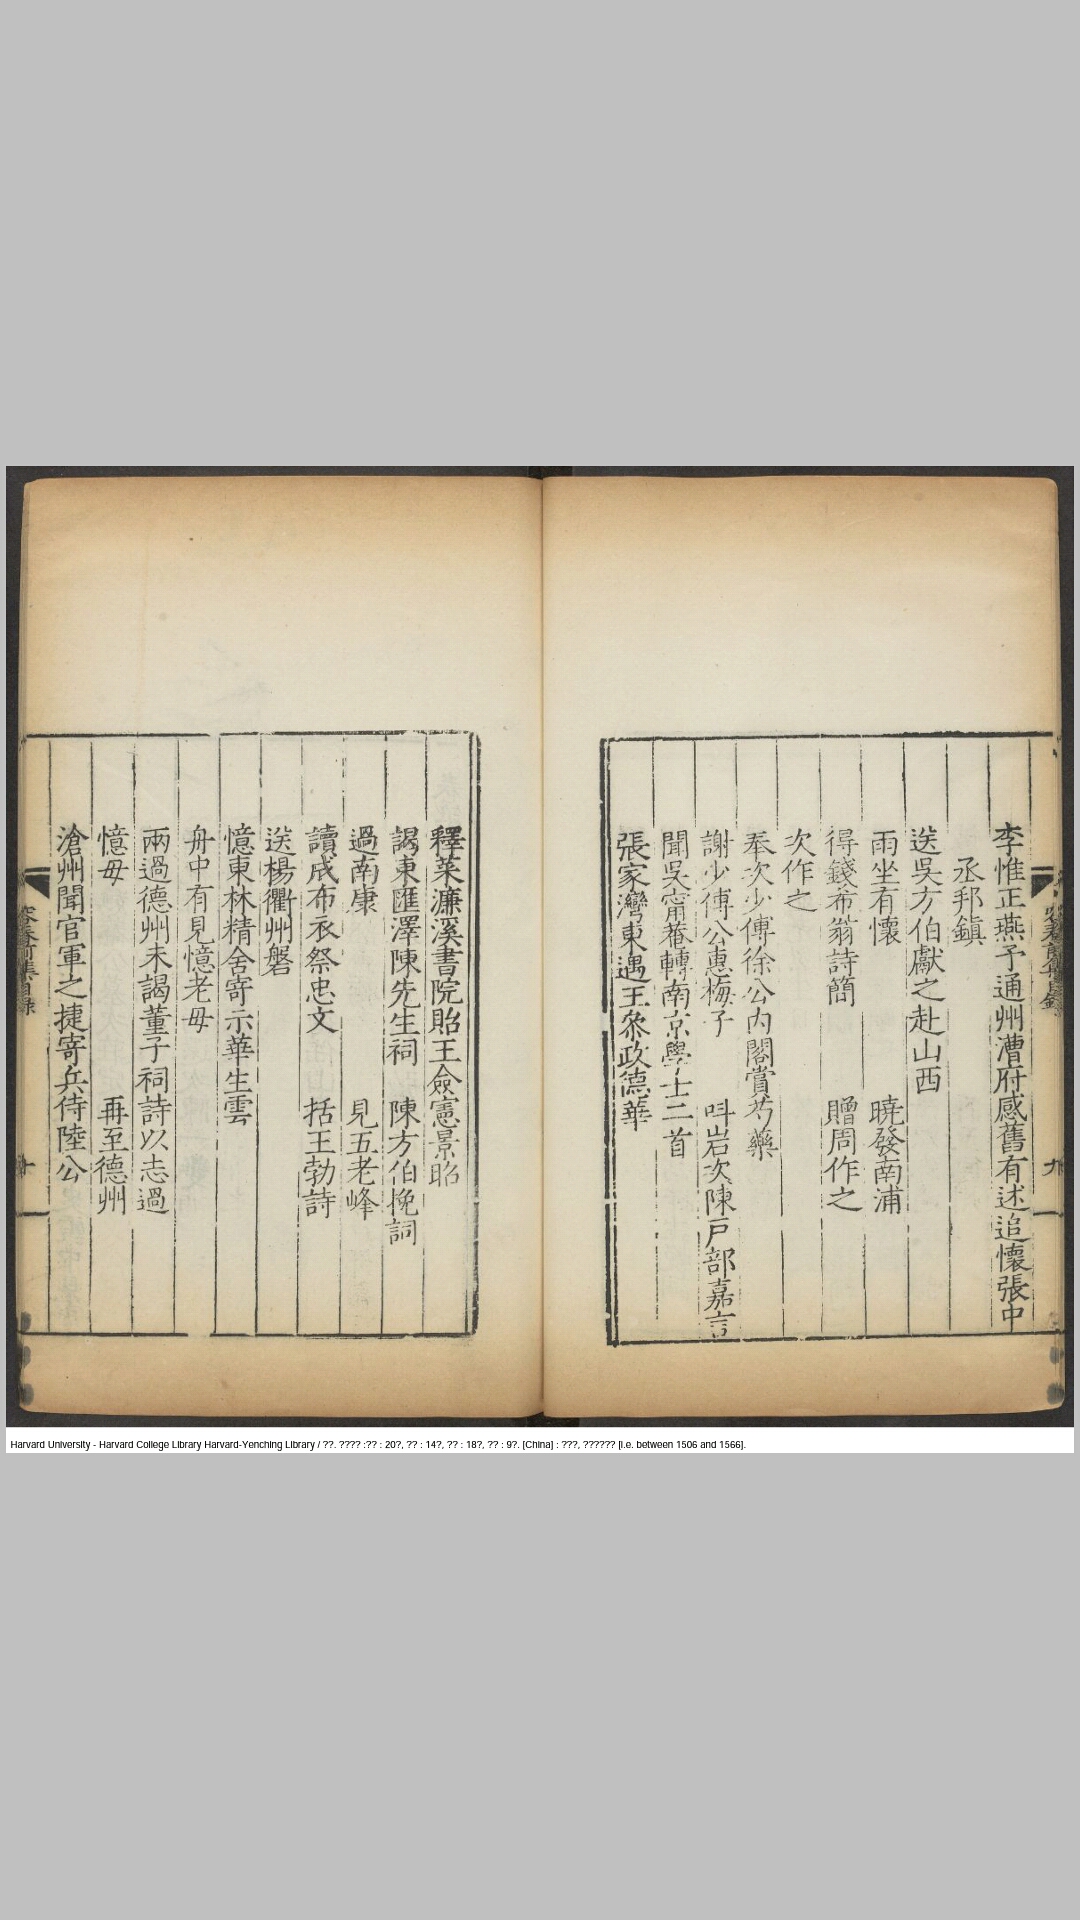 李惟正燕予通州漕府感舊有述追懷張中
丞邦鎮
送吳方伯獻之赴山西
雨坐有懷　曉發南浦
得錢希翁詩簡　贈周作之
次作之
奉次少傅徐公内閣賞芍藥
謝少傅公惠梅子　呌岩次陳戸部嘉言
聞吳甯菴轉南京學士二首
張家灣東遇王叅政德華
九
釋菜濂溪書院貽王僉憲景昭
謁東匯澤陳先生祠　陳方伯挽詞
過南康　見五老峰
讀成布衣祭忠文　括王勃詩
送楊衢州磐
憶東林精舍寄示華生雲
舟中有見憶老母
兩過德州未謁董子祠詩以志過
憶母　再至德州
滄州聞官軍之捷寄兵侍陸公
容春前集目錄
十
Harvard University - Harvard College Library Harvard-Yenching Library / ??. ???? :?? : 20?, ?? : 14?, ?? : 18?, ?? : 9?. [China] : ???, ?????? [I.e. between 1506 and 1566].